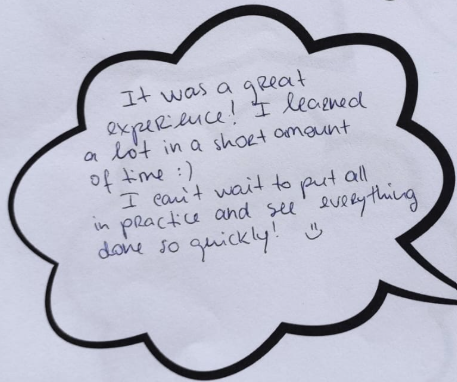 It was a great
experience! I learned
a lot in a short amount
of time :)
I can't wait to put all
in practice and see everything
done so quickly! :)